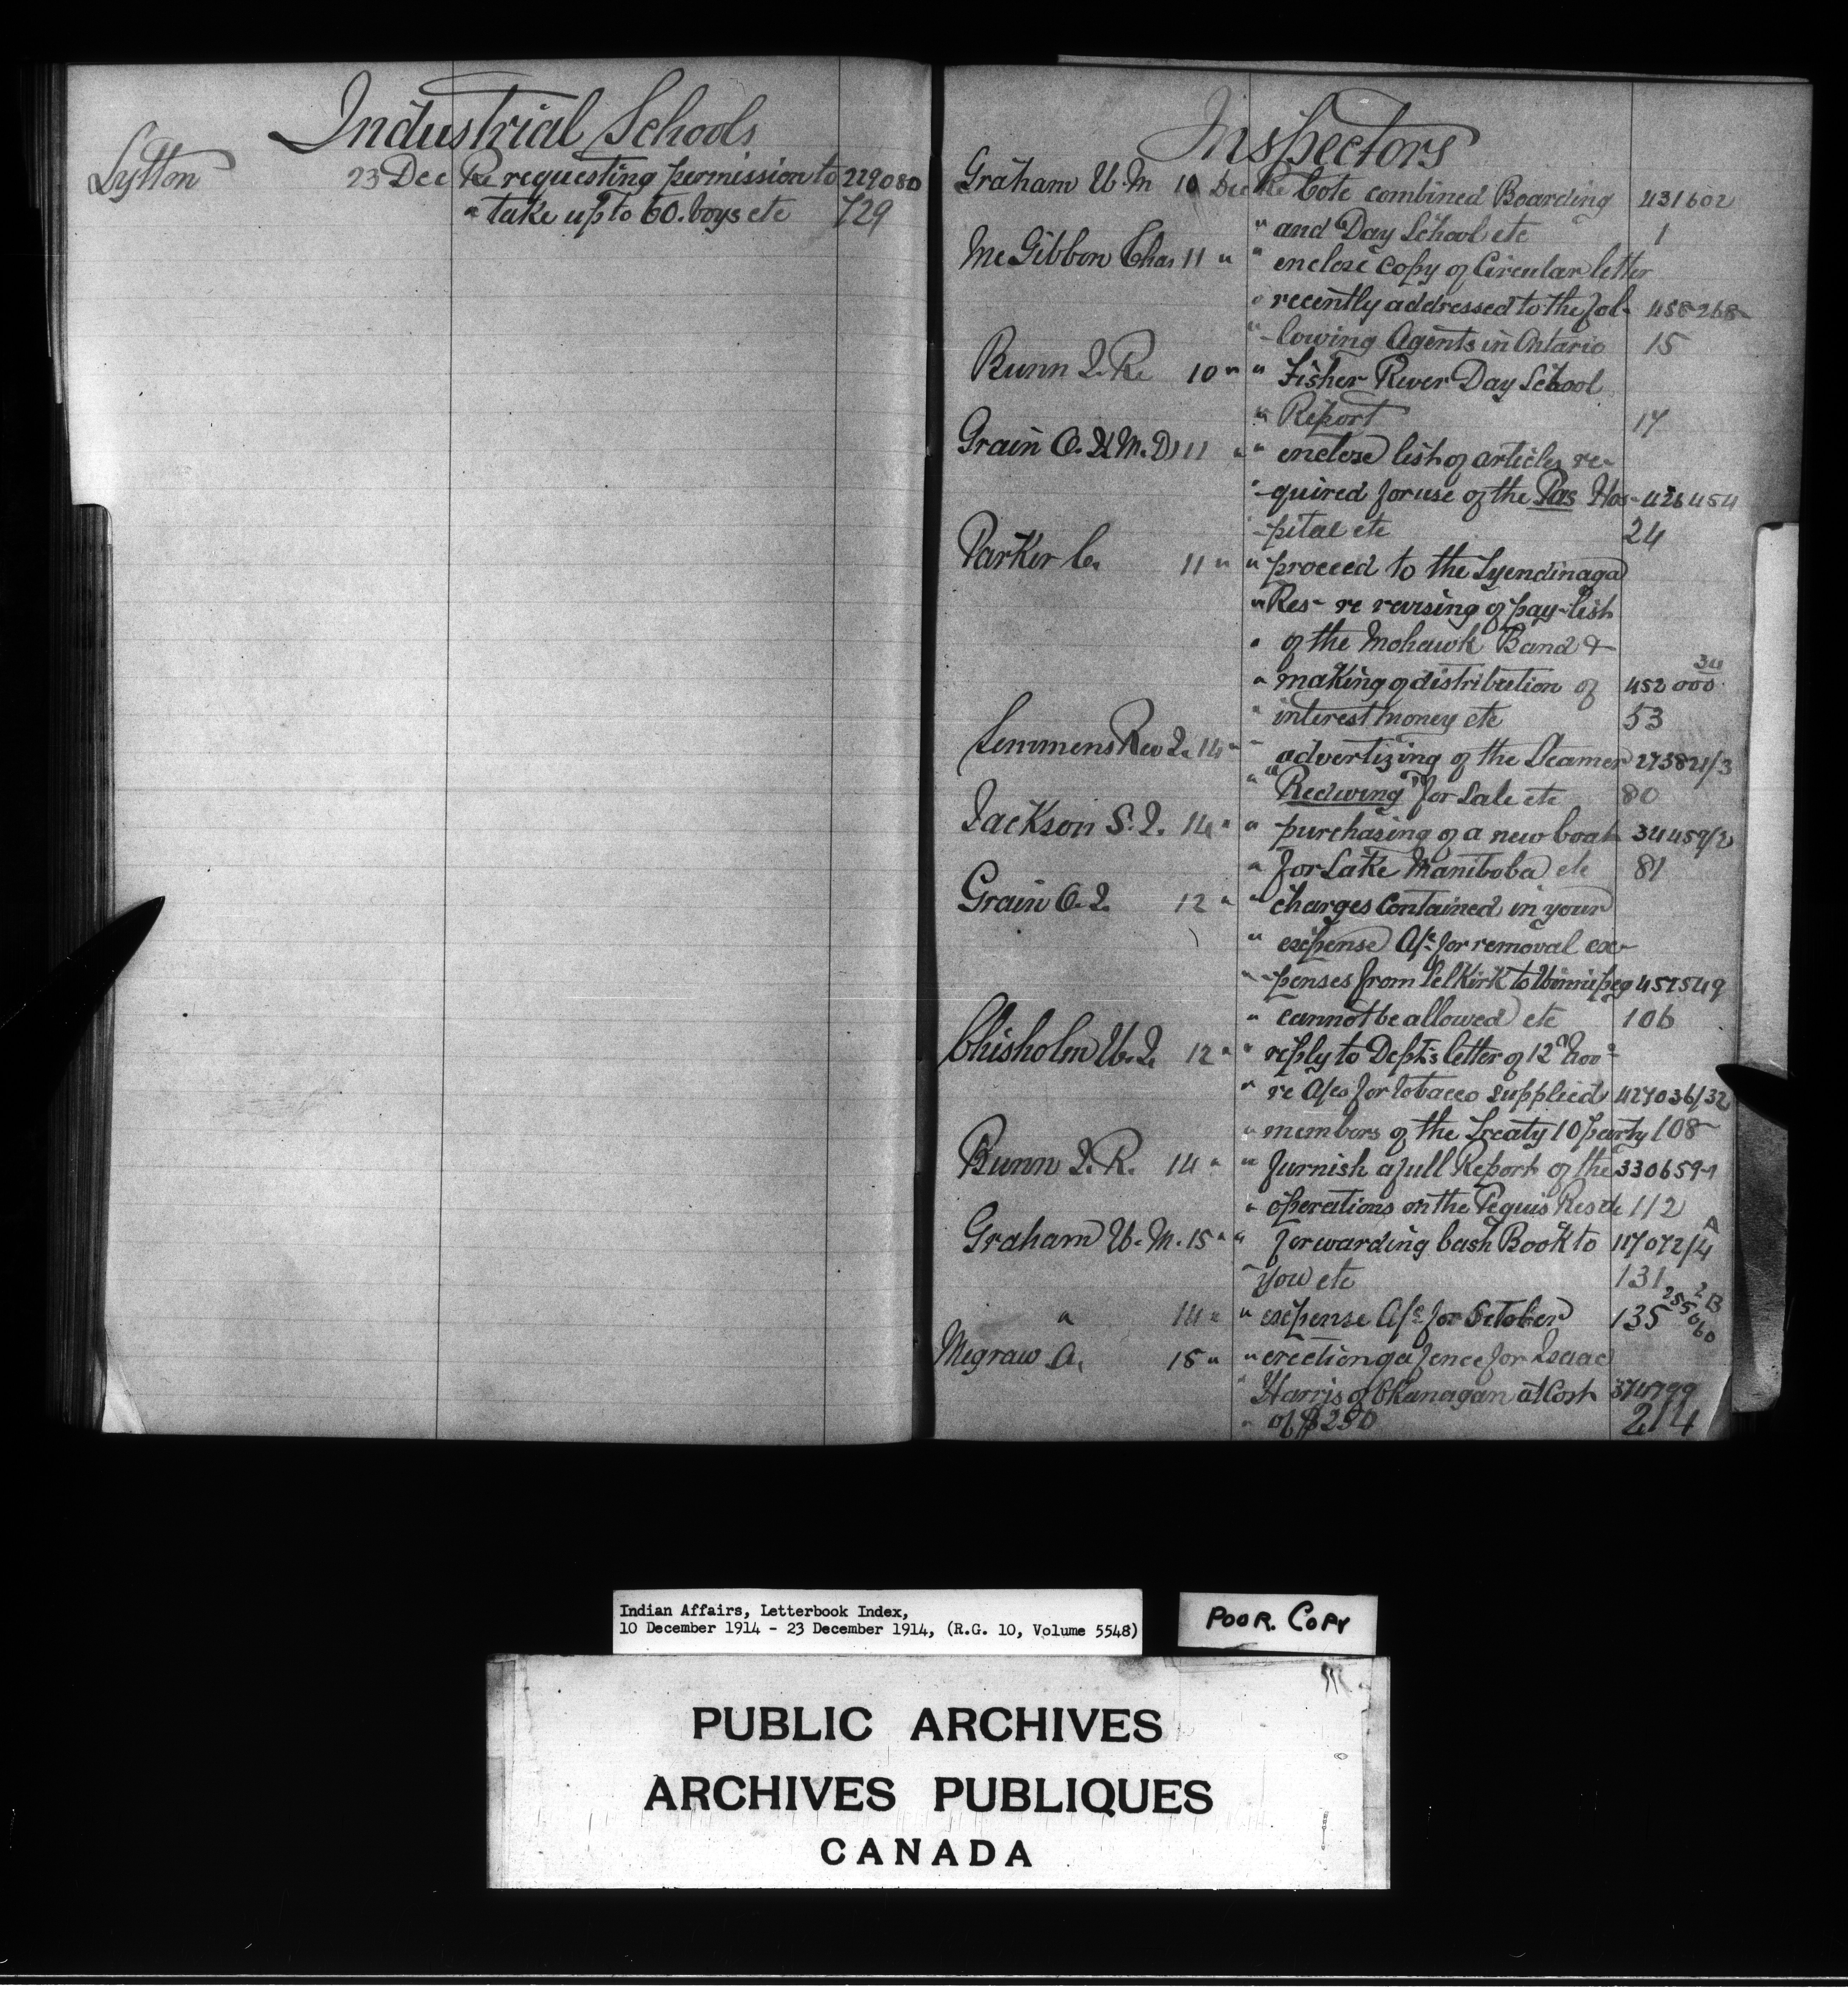 Industrial Schools
Lytton 23 Dec Re requesting permission to 229080
" take up to 60 boys etc 729
Inspectors
Graham W. M 10 Dec Re Cote combined Boarding 431602
" and Day School etc 1
McGibbon Chas 11 " " enclose copy of Circular letter
" recently addressed to the fol- 458268
" -lowing Agents in Ontario 15
Bunn J. R. 10 " " Fisher River Day School
" Report 17
Grain O. I M.D 11 " " enclose list of articles re-
" -quired for use of the Pas Hos- 426454
" -pital etc 24
Parker C. 11 " " proceed to the Tyendinaga
" Res- re revising of pay-list
" of the Mohawk Band &
" making of distribution of 452000 34
" interest money etc 53
Semmens Rev J. 14 " " advertizing of the Steamer 273821/3
" "Redwing" for Sale etc 80
Jackson S. J. 14 " " purchasing of a new boat 34459/2
" for Lake Manitoba etc 81
Grain O. I. 12 " " charges contained in your
" expense A/c for removal ex-
" -penses from Selkirk to Winnipeg 457549
" cannot be allowed etc 106
Chisholm W. J. 12 " " reply to Dept's letter of 12th Nov
" re A/cs for tobacco supplied 427036/32
" members of the Treaty 10 party 108
Bunn J. R. 14 " " furnish a full Report of the 330659-1
" operations on the Peguis Res etc 112
Graham W. M. 15 " " forwarding Cash Book to 117072/4 A
" you etc 131
" 14 " " expense A/c for October 135 255060 2B
Megraw A. 15 " " erection of a fence for Isaac
" Harris of Okanagan at Cost 374799
" of $250 214
Indian Affairs, Letterbook Index,
10 December 1914 - 23 December 1914, (R.G. 10, Volume 5548)
POOR. COPY
PUBLIC ARCHIVES
ARCHIVES PUBLIQUES
CANADA